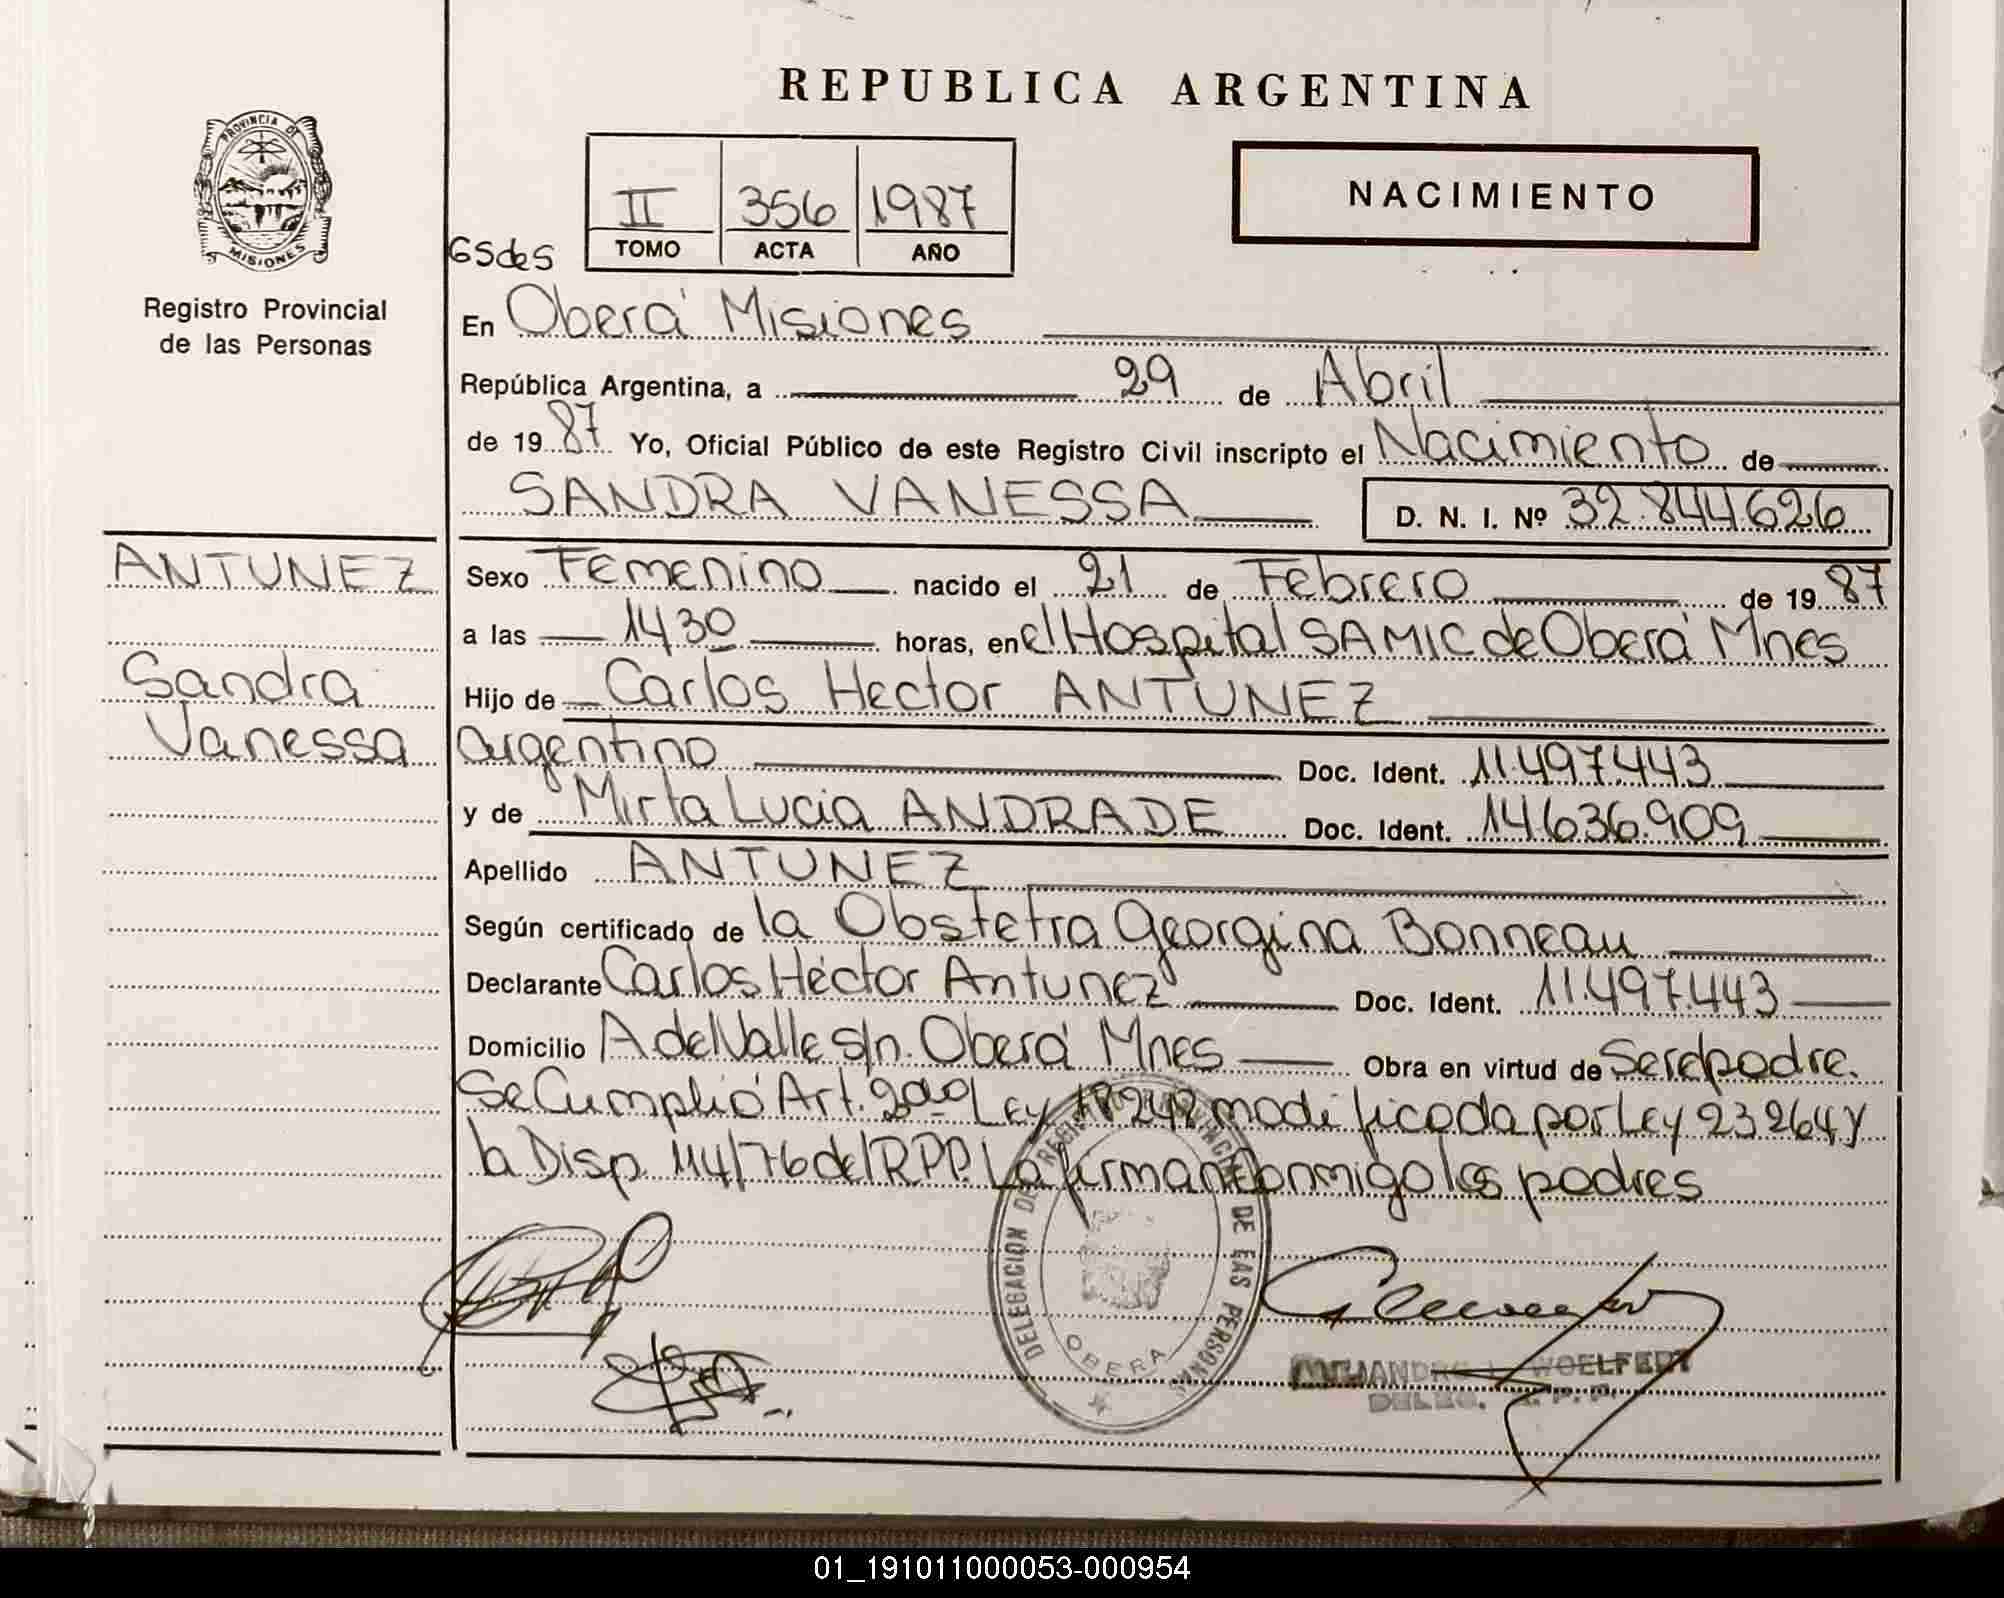 REPUBLICA ARGENTINA
PROVINCIA DE
MISIONES
Registro Provincial
de las Personas
II 356 1987
TOMO ACTA AÑO
NACIMIENTO
En Oberá Misiones
República Argentina, a 29 de Abril
de 1987 Yo, Oficial Público de este Registro Civil inscripto el Nacimiento de
SANDRA VANESSA D. N. I. Nº 32.844.626
ANTUNEZ
Sandra
Vanessa
Sexo Femenino nacido el 21 de Febrero de 1987
a las 1430 horas, en el Hospital SAMIC de Oberá Mnes
Hijo de Carlos Hector ANTUNEZ
argentino Doc. Ident. 11.497.443
y de Mirta Lucia ANDRADE Doc. Ident. 14.636.909
Apellido ANTUNEZ
Según certificado de la Obstetra Georgina Bonneau
Declarante Carlos Héctor Antunez Doc. Ident. 11.497.443
Domicilio A del Valle s/n. Oberá Mnes Obra en virtud de Ser el padre.
Se Cumplió Art. Ley 18248 modificada por Ley 23264 y
la Disp. 114/76 del RPP. La firman Conmigo los padres
DELEGACION DEL REGISTRO PROVINCIAL DE LAS PERSONAS
OBERA
WOELFERT
DELEG. R. P. P.
01_191011000053-000954